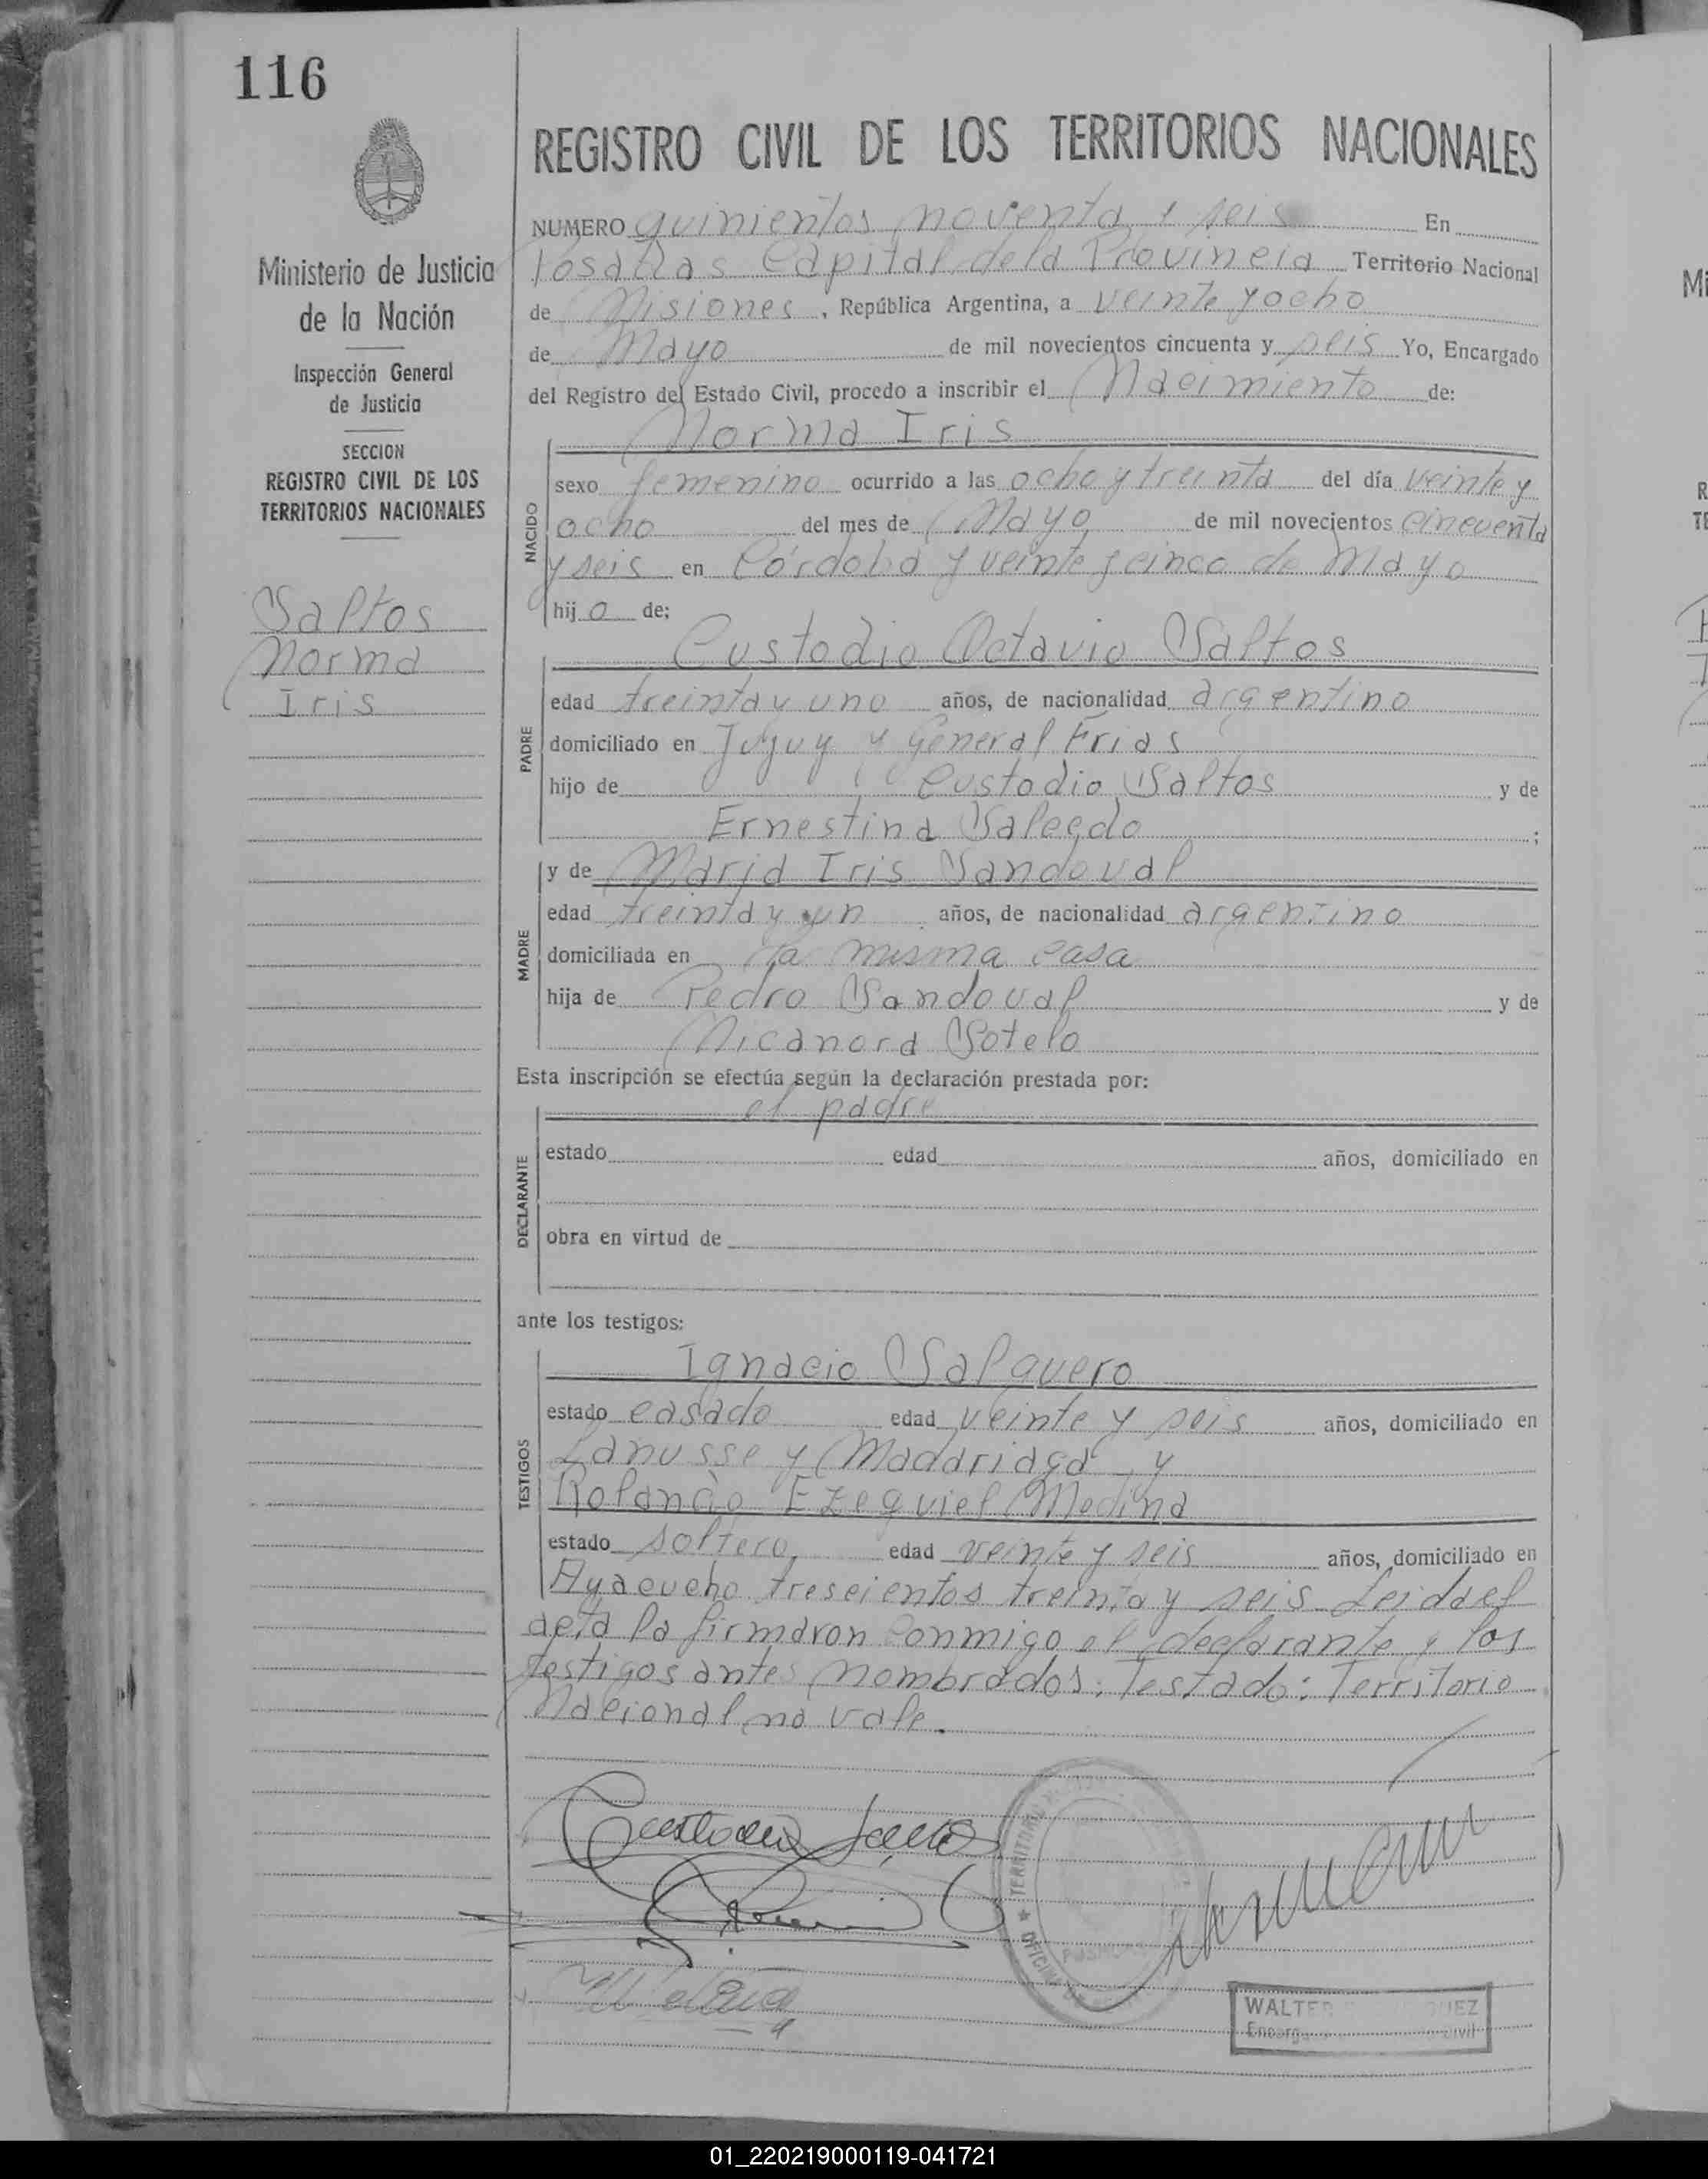 116
REGISTRO CIVIL DE LOS TERRITORIOS NACIONALES
Ministerio de Justicia
de la Nación
Inspección General
de Justicia
SECCION
REGISTRO CIVIL DE LOS
TERRITORIOS NACIONALES
Saltos
Norma
Iris
NUMERO quinientos noventa y seis En
Posadas Capital de la Provincia Territorio Nacional
de Misiones, República Argentina, a veinte y ocho
de Mayo de mil novecientos cincuenta y seis Yo, Encargado
del Registro del Estado Civil, procedo a inscribir el Nacimiento de:
Norma Iris
NACIDO
sexo femenino ocurrido a las ocho y treinta del día veinte y
ocho del mes de Mayo de mil novecientos cincuenta
y seis en Córdoba y veinte y cinco de Mayo
hij a de;
Custodio Octavio Saltos
PADRE
edad treinta y uno años, de nacionalidad argentino
domiciliado en Jujuy y General Frias
hijo de Custodio Saltos y de
Ernestina Salcedo ;
y de Maria Iris Sandoval
MADRE
edad treinta y un años, de nacionalidad argentino
domiciliada en la misma casa
hija de Pedro Sandoval y de
Nicanora Sotelo
Esta inscripción se efectúa según la declaración prestada por:
el padre
DECLARANTE
estado edad años, domiciliado en
obra en virtud de
ante los testigos:
Ignacio Salguero
TESTIGOS
estado casado edad veinte y seis años, domiciliado en
Lanusse y Madariaga y
Rolando Ezequiel Medina
estado soltero, edad veinte y seis años, domiciliado en
Ayacucho trescientos treinta y seis Leida el
acta la firmaron conmigo el declarante y los
testigos antes nombrados: Testado: Territorio
Nacional no vale.
Custodio Saltos
TERRITORIO
OFICINA
POSADAS
WALTER
Encarg Civil
01_220219000119-041721